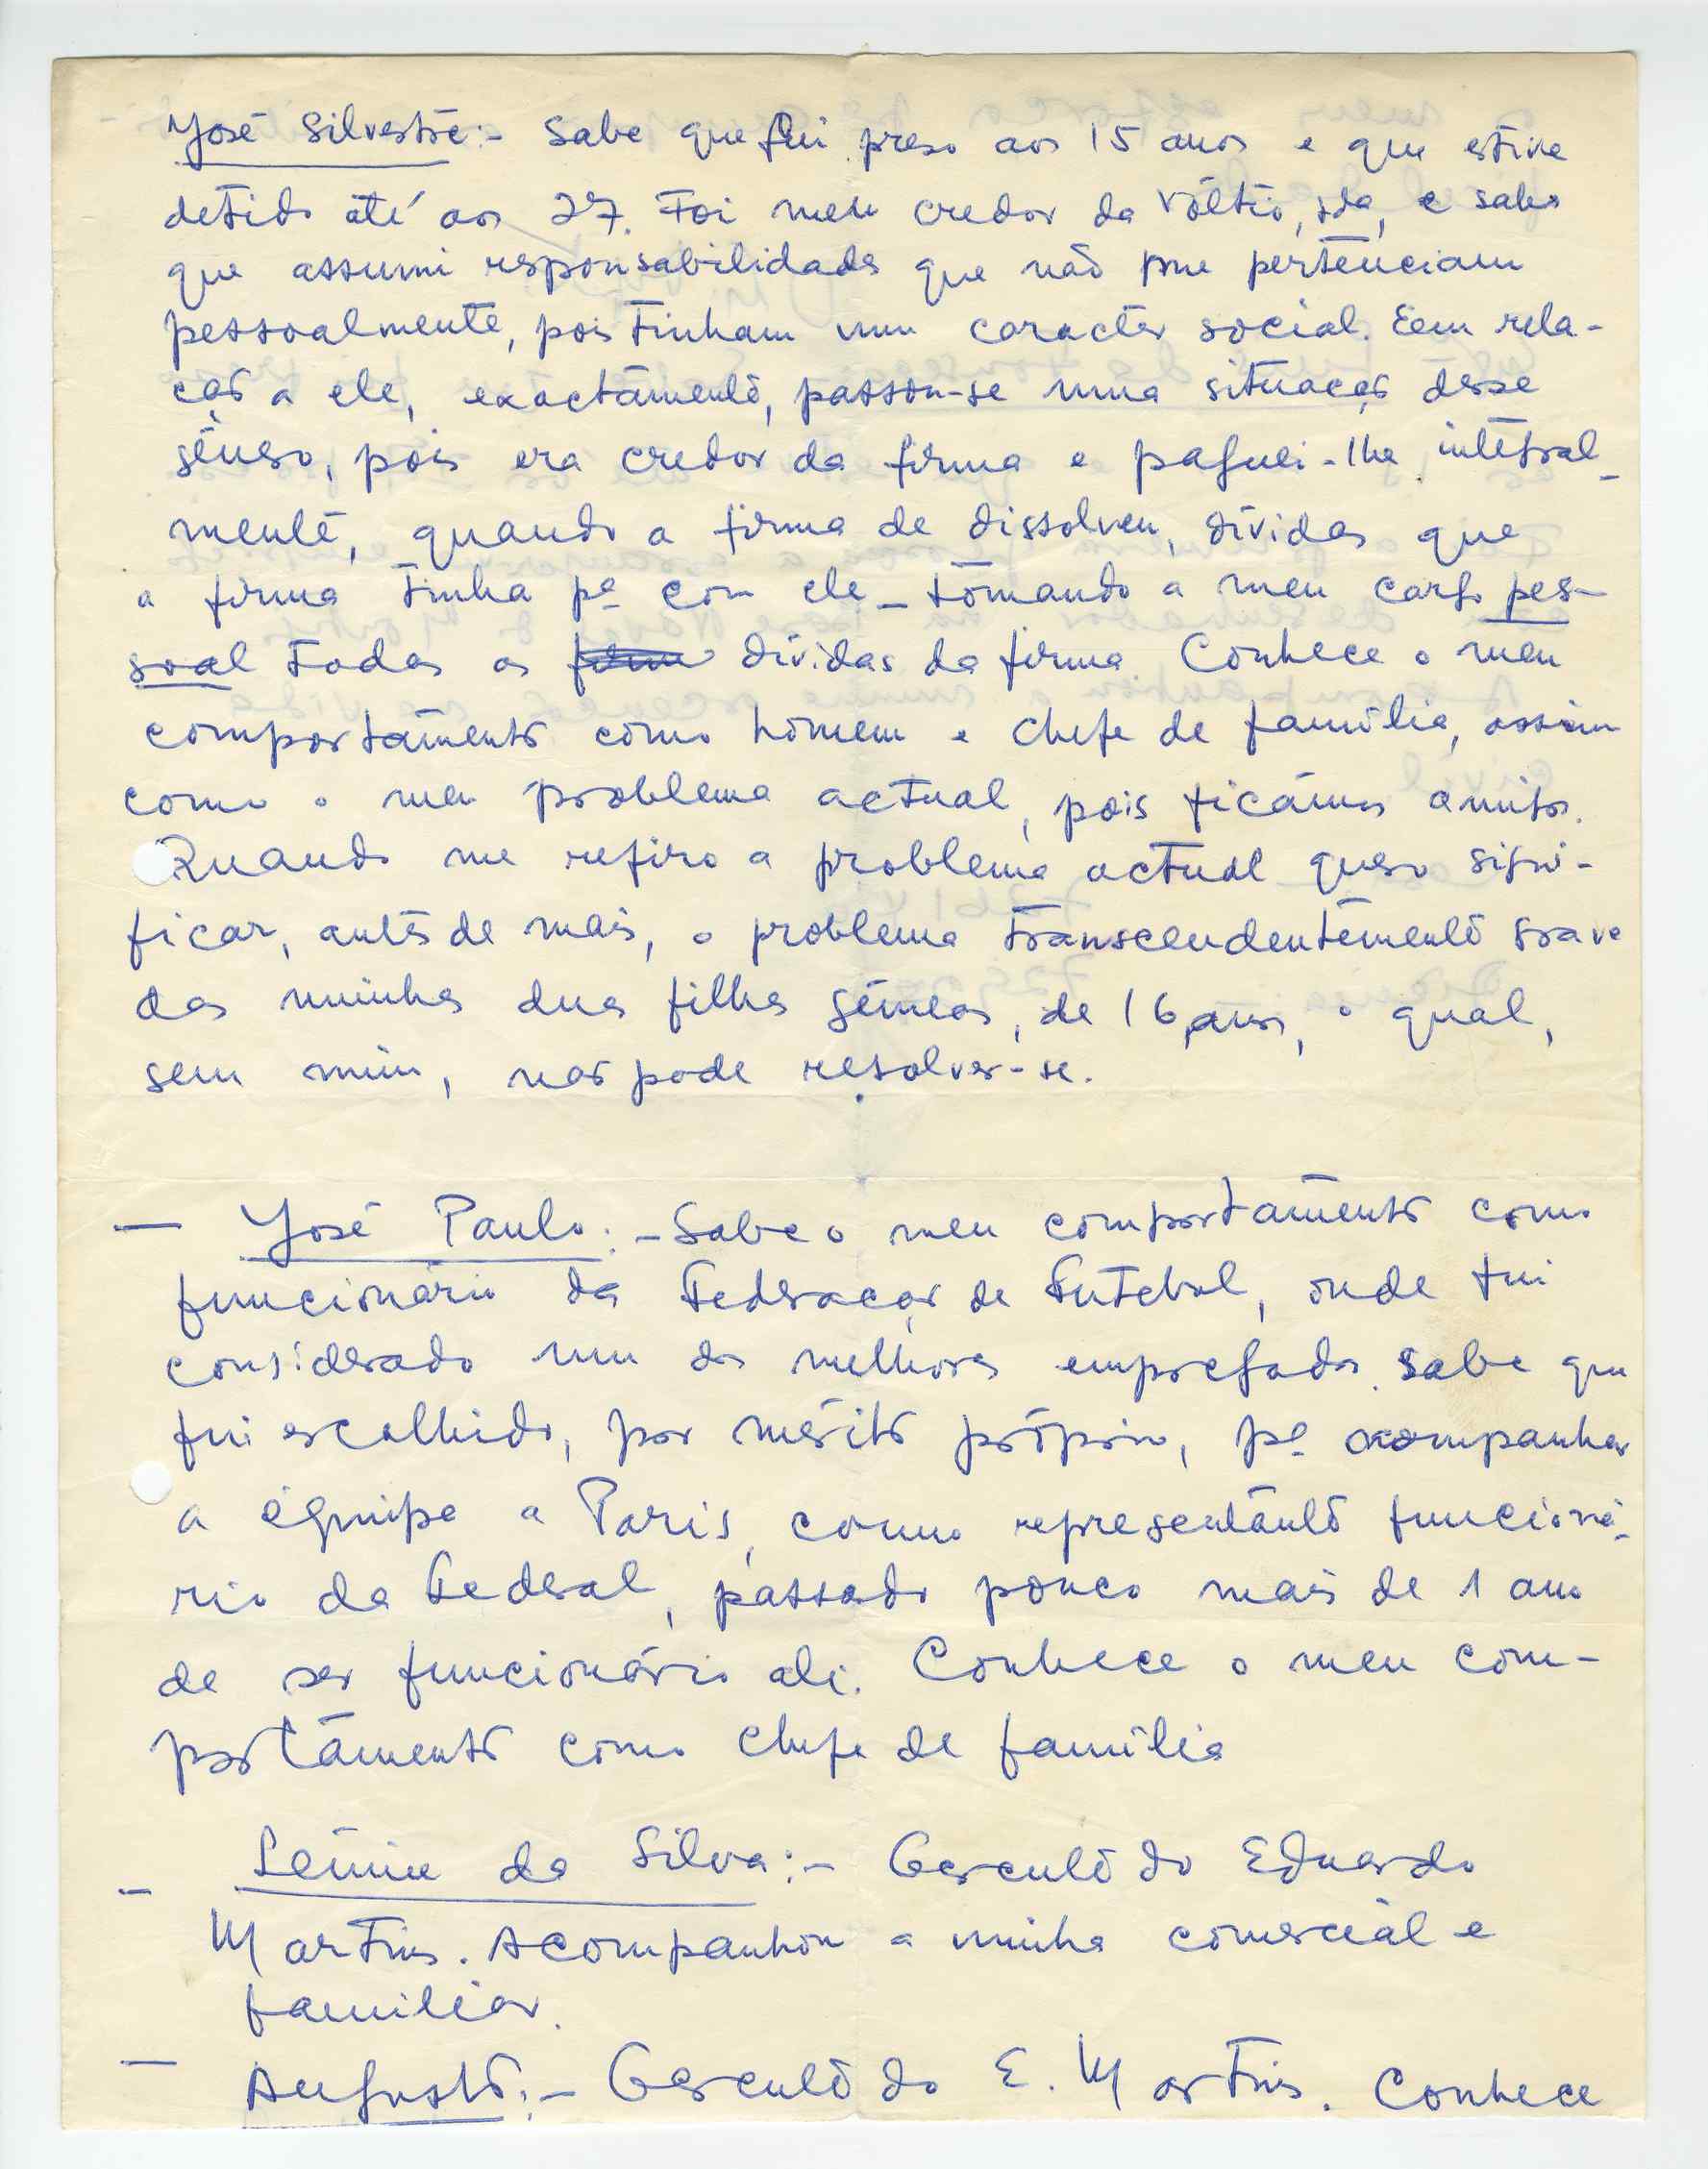 José Silvestre:- Sabe que fui preso aos 15 anos e que estive
detido até aos 27. Foi meu credor da Vóltio, Lda, e sabe
que assumi responsabilidades que não me pertenciam
pessoalmente, pois tinham um caracter social. E em rela-
ção a ele, exactamente, passou-se uma situação desse
género, pois era credor da firma e paguei-lhe integral-
mente, quando a firma de dissolveu, dívidas que
a firma tinha pª com ele - tomando a meu cargo pes-
soal todas as dívidas da firma. Conhece o meu
comportamento como homem e chefe de família, assim
como o meu problema actual, pois ficámos amigos.
Quando me refiro a problema actual quero signi-
ficar, antes de mais, o problema transcendentemente grave
das minhas duas filhas gémeas, de 16 anos, o qual,
sem mim, não pode resolver-se.
— José Paulo:- Sabe o meu comportamento como
funcionário da Federação de Futebol, onde fui
considerado um dos melhores empregados. Sabe que
fui escolhido, por mérito próprio, pª acompanhar
a équipe a Paris, como representante funcioná-
rio da Federal, passado pouco mais de 1 ano
de ser funcionário ali. Conhece o meu com-
portamento como chefe de família
- da Silva:- Gerente do Eduardo
Martins. Acompanhou a minha comercial e
familiar.
— Augusto:- Gerente do E. Martins. Conhece